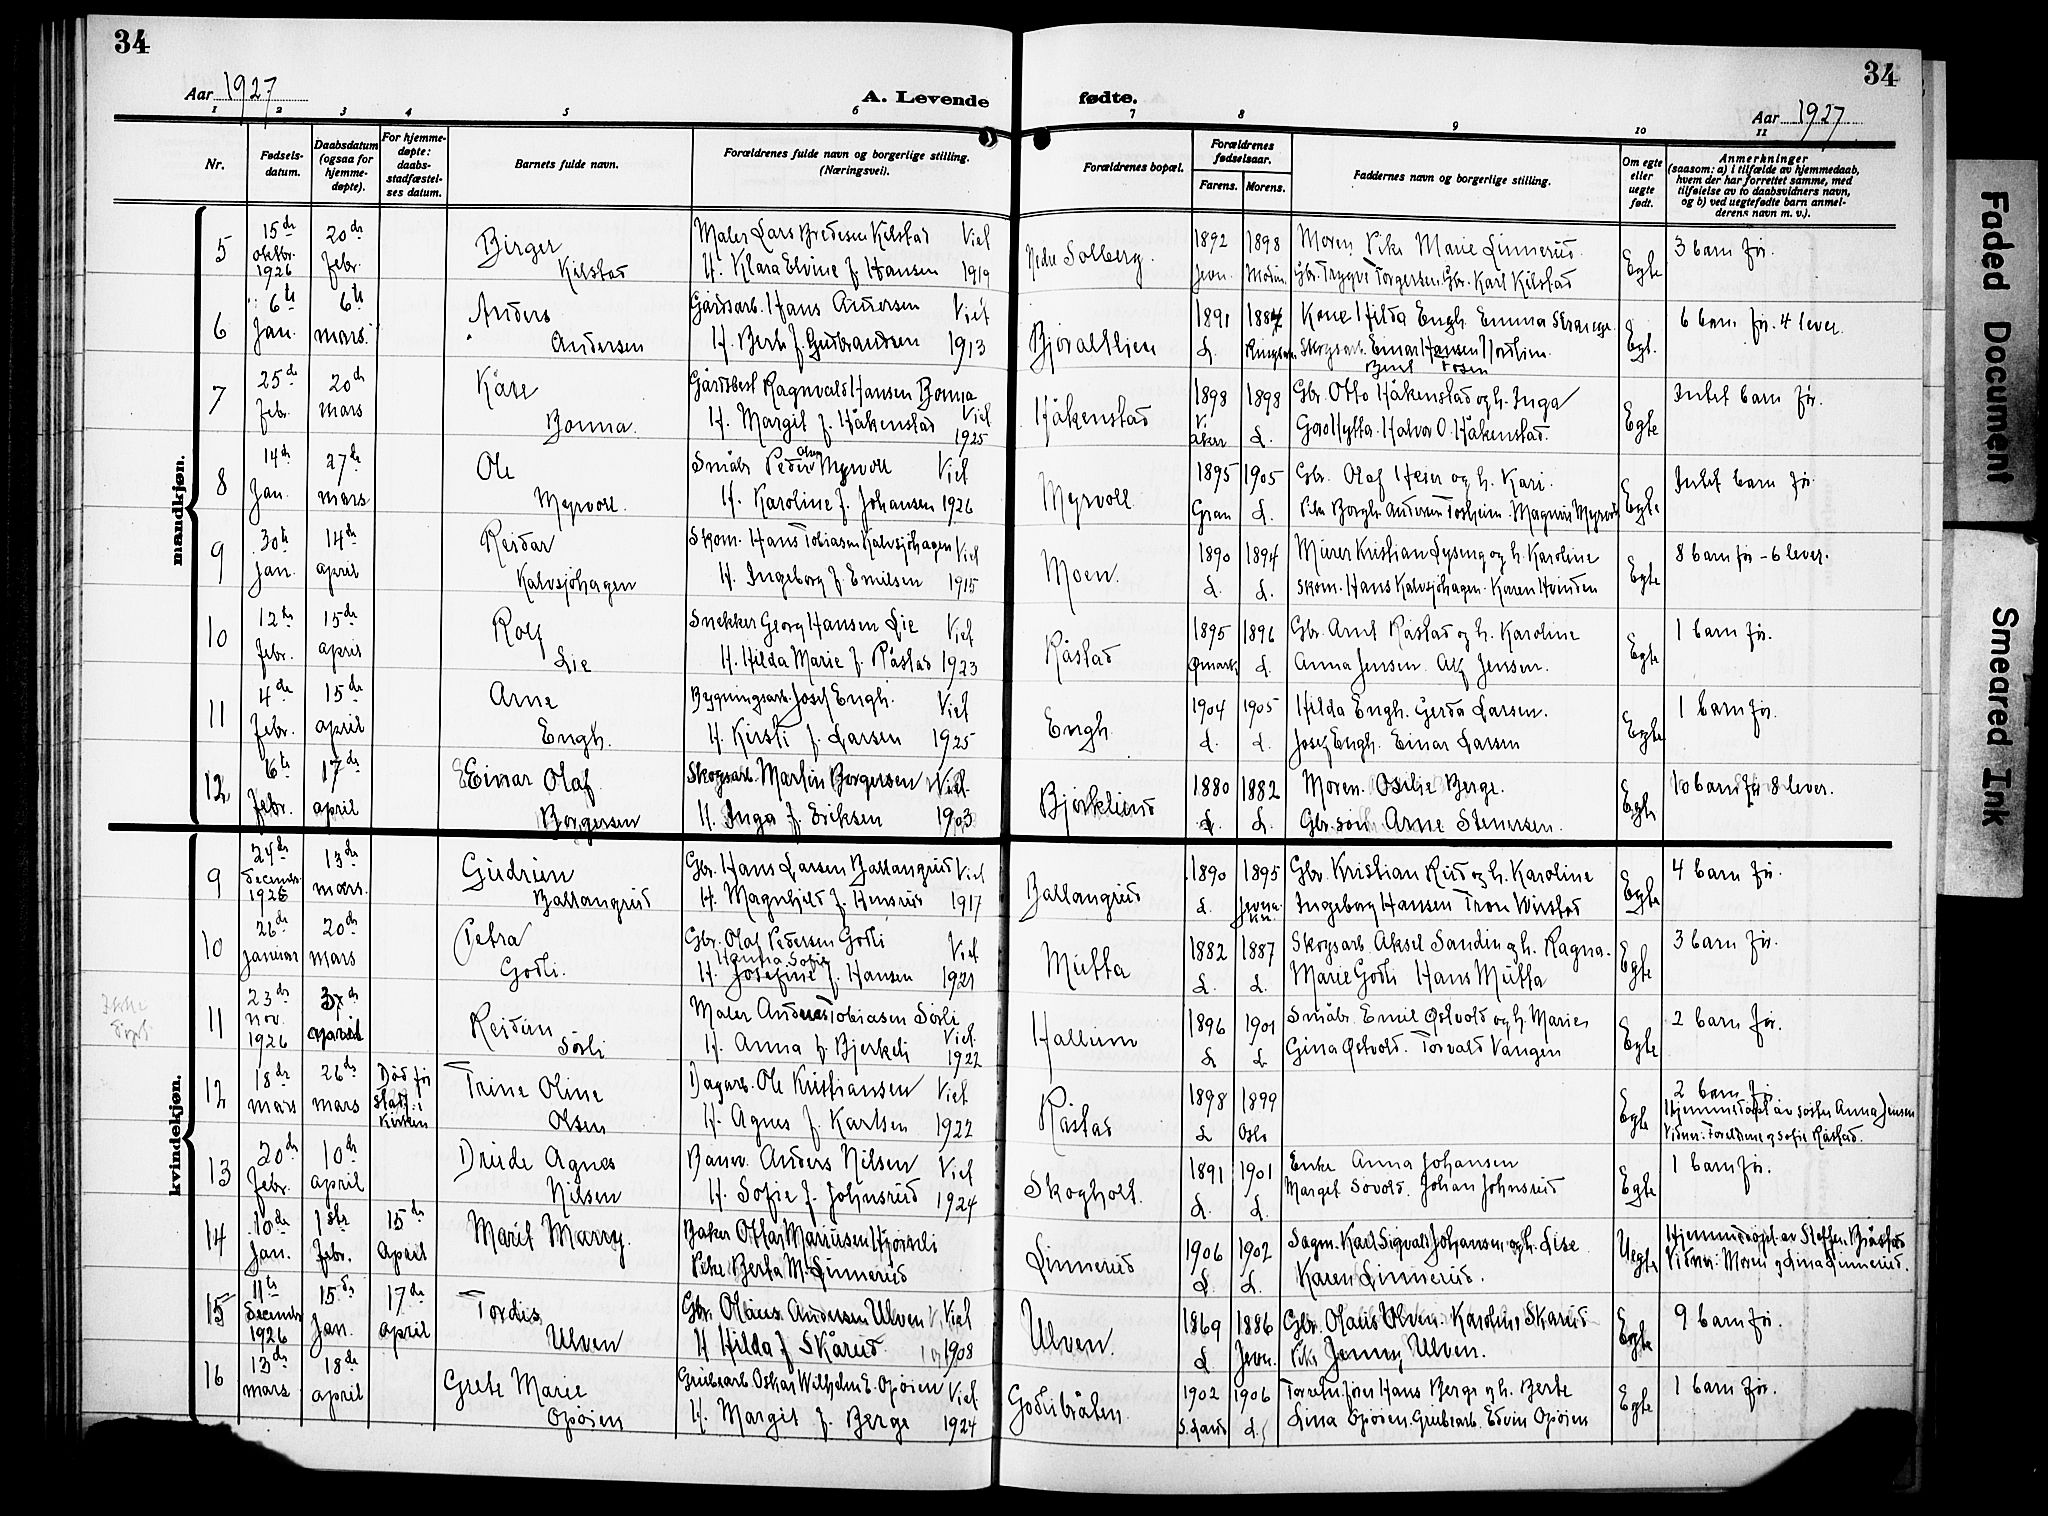 34
34
Aar 1927
A. Levende fødte.
Aar 1927
1 2 3 4 5 6 7 8 9 10 11
Nr.
Fødsels-
datum.
Daabsdatum
(ogsaa for
hjemme-
døpte).
For hjemme-
døpte:
daabs-
stadfæstel-
ses datum.
Barnets fulde navn.
Forældrenes fulde navn og borgerlige stilling.
(Næringsvei).
Forældrenes bopæl.
Forældrenes
fødselsaar.
Farens. Morens.
Faddernes navn og borgerlige stilling.
Om egte
eller
uegte
født.
Anmerkninger
(saasom: a) i tilfælde av hjemmedaab,
hvem der har forrettet samme, med
tilføielse av to daabsvidners navn,
og b) ved uegtefødte barn anmel-
derens navn m. v.).
mandkjøn.
5 15de 20de Birger Maler Lars Bredesen Kilstad Viet Nedre Solberg. 1892 1898 Moren Pike Marie Linnerud. Egte 3 barn før.
oktbr. 1926 febr. Kilstad H. Klara Elvine f. Hansen 1919 Jevn. Modum. Gbr. Trygve Torgersen. Gbr. Karl Kilstad
6 6te 6te Anders Gårdsarb. Hans Andersen Viet Bjøraltlien 1891 1887 Kone Hilda Engh. Emma Strange. Egt. 6 barn før. 4 lever.
Jan. mars. Andersen H. Berte f. Gudbrandsen 1913 L. Skogsarb. Einar Hansen Nordlien.
7 25de 20de Kåre Gårdsbest. Ragnvald Hansen Bonna Håkenstad 1898 1898 Gbr. Otto Håkenstad og h. Inga Egte Intet barn før.
febr. mars Bonna. H. Margit f. Håkenstad Viet 1925 V. Aker L. Halvor O. Håkenstad.
8 14de 27de Ole Småbr. Peder Olsen Myrvoll Viet Myrvoll 1895 1905 Gbr. Olaf Heier og h. Kari. Egte Intet barn før.
Jan. mars Myrvoll. H. Karoline f. Johansen 1926 Gran L. Pike Borghi Andersen Tosheim. Magnus Myrvold
9 30te 14de Reidar Skom. Hans Tobiasen Kalvsjøhagen Viet Moen. 1890 1894 Murer Kristian Lyseng og h. Karoline Egte 8 barn før – 6 lever.
Jan. april Kalvsjøhagen H. Ingeborg f. Emilsen 1915 L. L. Skom. Hans Kalvsjøhagen. Karen Hvinden
10 12te 15de Rolf Snekker Georg Hansen Lie Viet Råstad 1895 1896 Gbr. Arnt Råstad og h. Karoline Egte 1 barn før.
febr. april Lie H. Hilda Marie f. Råstad 1923 Ømark L. Anna Jensen. Alf Jensen.
11 4de 15de Arne Bygningsarb. Josef Engh. Viet Engh. 1904 1905 Hilda Engh. Gerda Larsen. Egte 1 barn før.
Febr. april Engh. H. Kirsti f. Larsen 1925 L. L. Josef Engh. Einar Larsen
12 6te 17de Einar Olaf Skogsarb. Martin Borgersen Viet Bjørkelund 1880 1882 Moren. Osilie Berge. Egte 10 barn før 8 lever.
febr. april Borgersen H. Inga f. Eriksen 1903 L. L. Gbr.søn Arne Stenersen.
kvindekjøn.
9 24de 13de Gudrun Gbr. Hans Larsen Ballangrud Viet Ballangrud 1890 1895 Gbr. Kristian Rud og h. Karoline Egte 4 barn før.
decemb. mars. Ballangrud H. Magnhild f. 1917 L. Ingeborg Hansen
10 26de 20de Petra Gbr. Olaf Pedersen Godli Viet Mutta 1882 1887 Skogsarb. Aksel Sandin og h. Ragna. Egte 3 barn før.
Januar mars Godli. H. Hanna Sofie Josefine f. Hansen 1921 L. L. Marie Godli Hans Mutta
11 23de april Reidun Maler Anders Tobiasen Sørli Viet Hallum 1896 1901 Småbr. Emil Østvold og h. Marie Egte 2 barn før.
nov. 1926 Sørli H. Anna f. Bjerkeli 1922 L L Gina Østvold. Torvald Vangen
12 18de 26de Død før Trine Oline Dagarb. Ole Kristiansen Viet Råstad 1898 1899 Egte 2 barn før
mars mars stadf. i Kirken Olsen H. Agnes f. Karlsen 1922 L Oslo Hjemmedøpt av søster Anna Jensen
Vidner: Foreldrene og Sofie Råstad.
13 20de 10de Drude Agnes Baner. Anders Nilsen Viet Skogholt. 1891 1901 Enke Anna Johansen Egte 1 barn før.
Febr. april Nilsen H. Sofie f. Johnsrud 1924 L. L. Margit Sovold. Johan Johnsrud
14 10de 1ste 15de Marit Marry. Baker Ottar Mariusen Linnerud 1906 1902 Sagm. Karl Sigvald Johansen og h. Lise Uegte Hjemmedøpt av Steffen Bråstad
Jan. febr. April Pike Berta M. Linnerud L. L. Karen Linnerud. Vidner: Moren og Lina Linnerud.
15 11te 15de 17de Tordis Gbr. Olaus Andersen Ulven Viet Ulven. 1869 1886 Gbr. Olaus Ulven. Karoline Skarud Egte 9 barn før.
decemb 1926 Jan. april Ulven H Hilda f Skårud. 1908 L Jevn. Pike Jenny Ulven.
16 13de 18de Grete Marie Grubearb. Oskar Wilhelm E. Opøien Viet Godlibråten. 1902 1906 Hans Berge og h. Berte Egte 1 barn før.
mars april Opøien H. Margit f. Berge 1924 S. Land L. Lina Opøien. Grubearb. Edvin Opøien
Faded Document
Smeared Ink